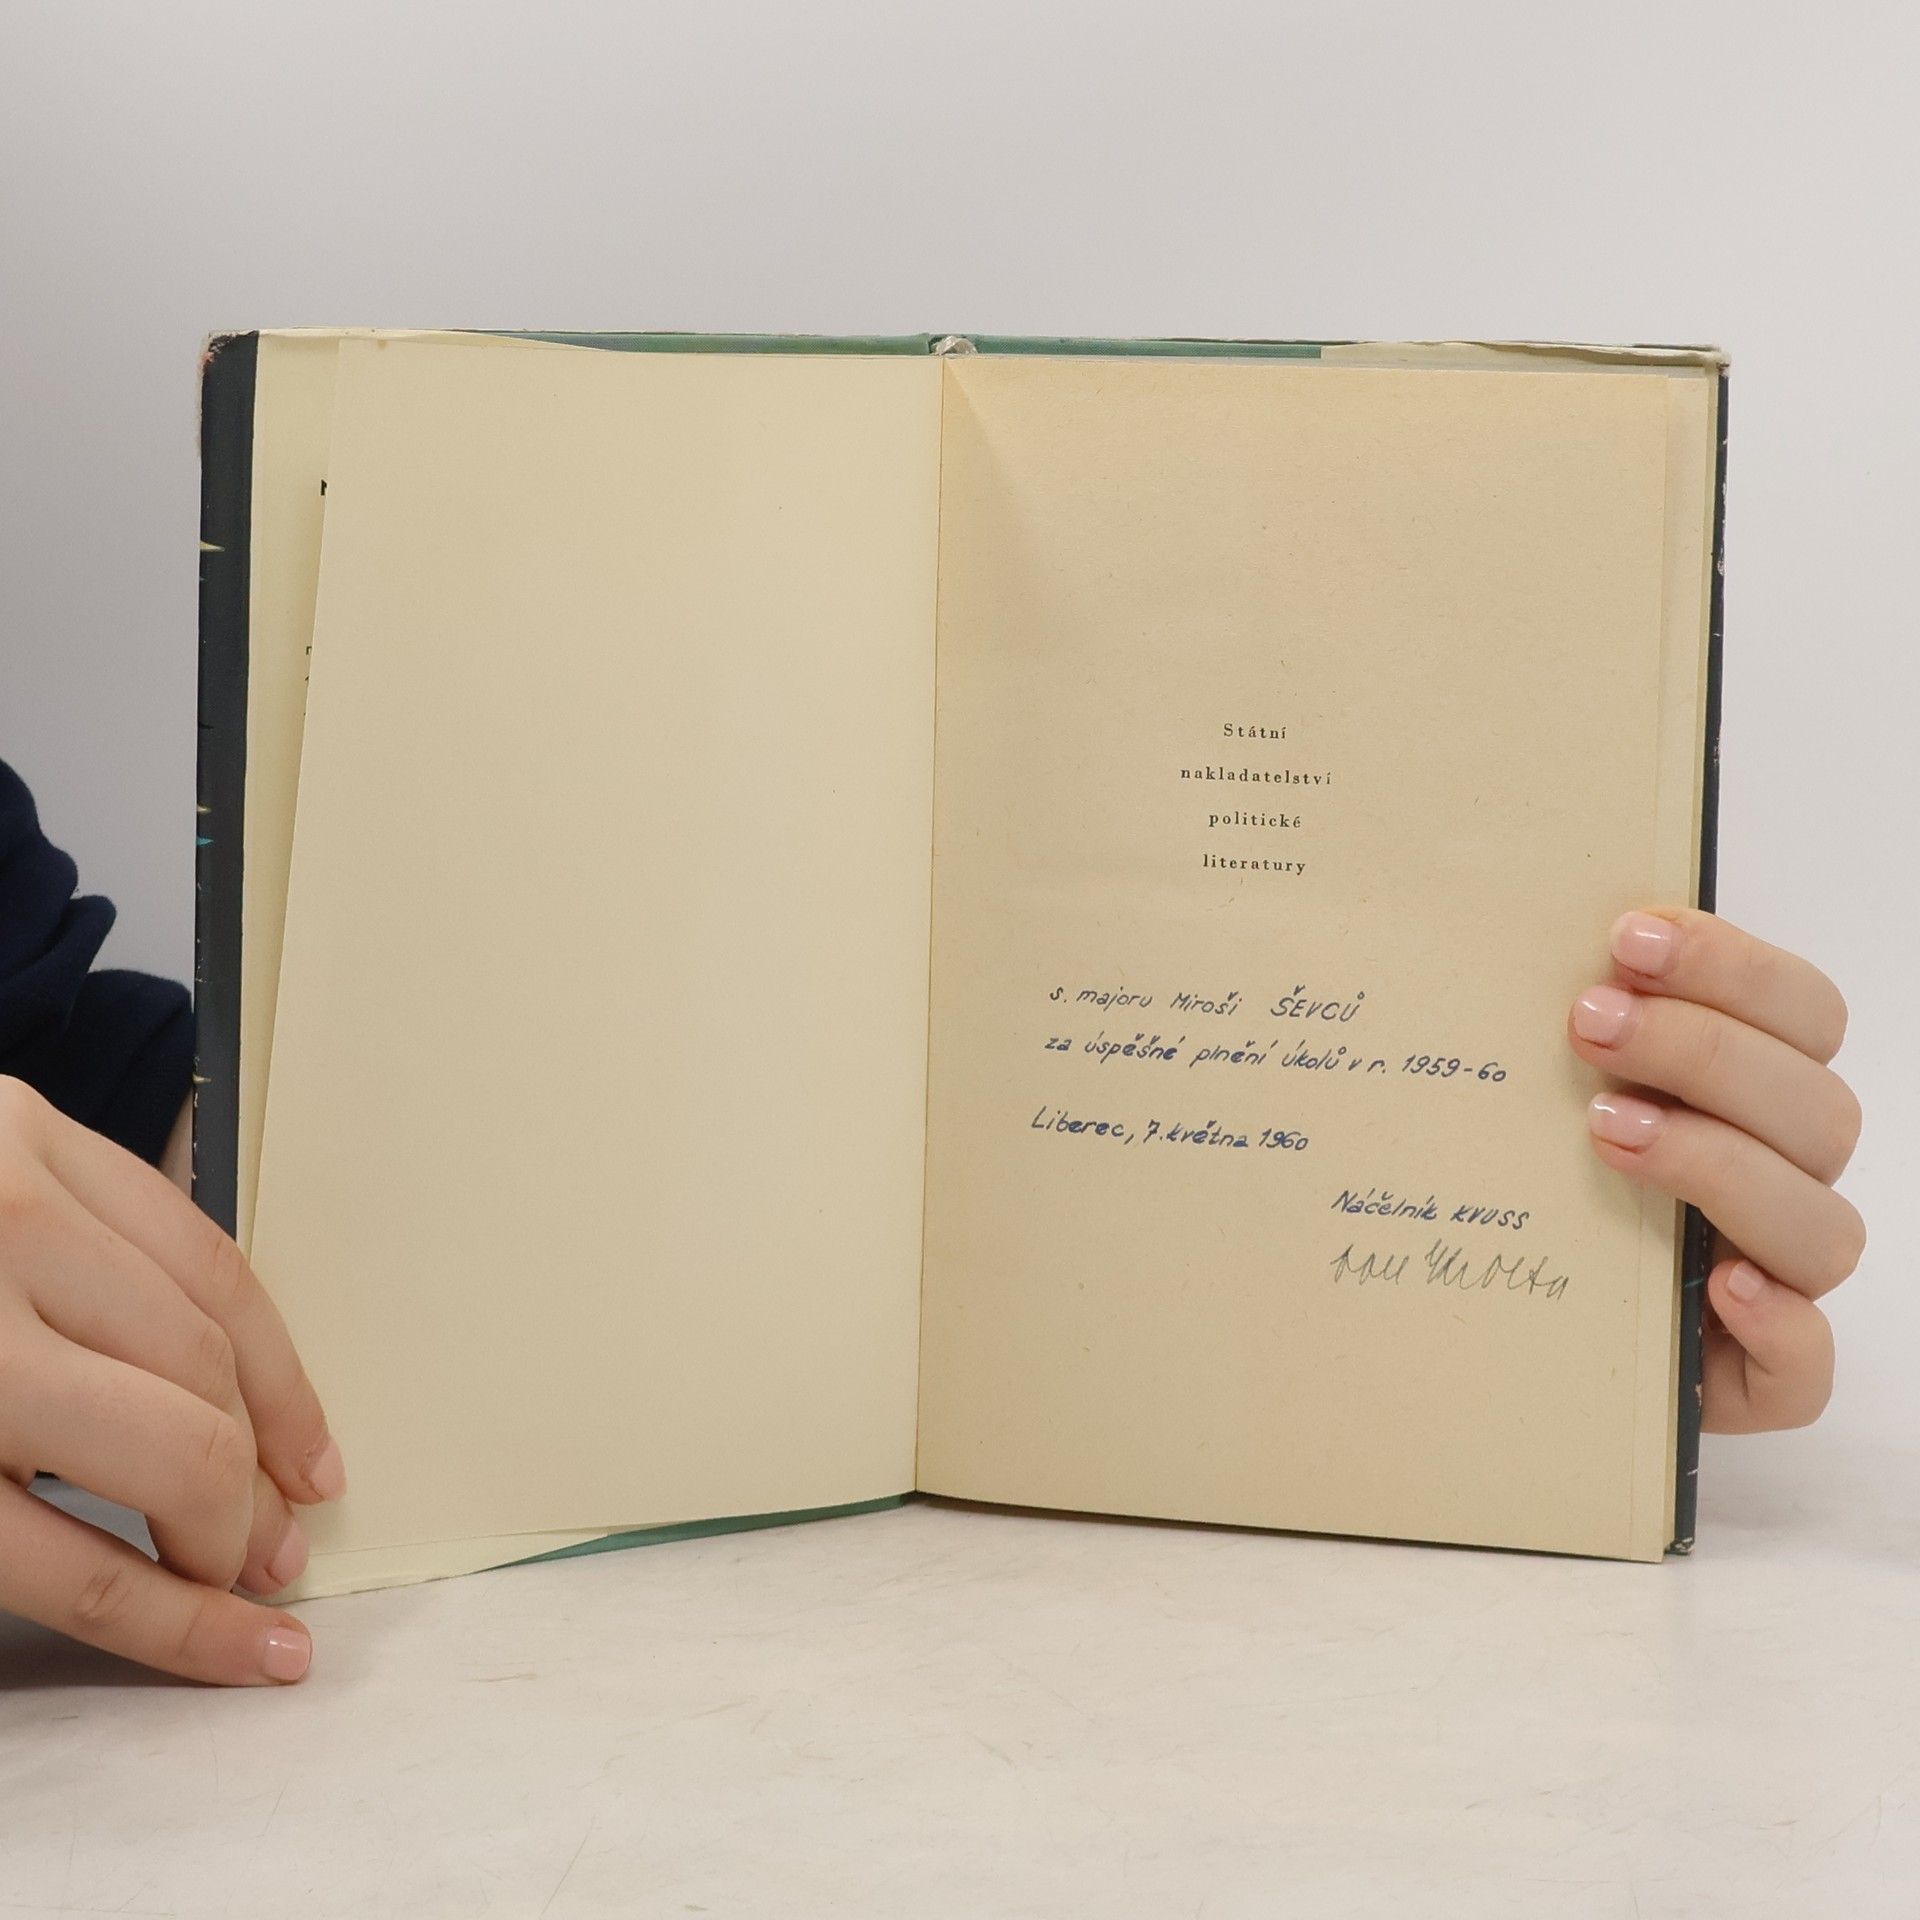 Státní
nakladatelství
politické
literatury
s. majoru Miroši ŠEVCŮ
za úspěšné plnění úkolů v r. 1959-60
Liberec, 7. května 1960
Náčelník KVUSS